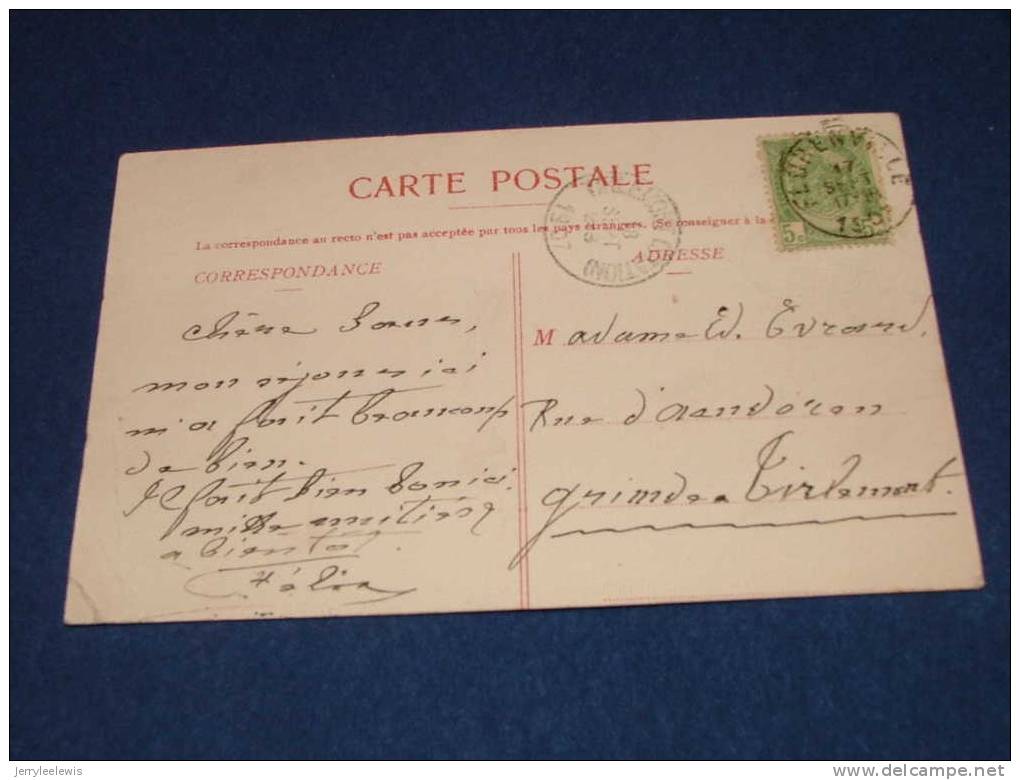 CARTE POSTALE
La correspondance au recto n'est pas acceptée par tous les pays étrangers. (Se renseigner à la
CORRESPONDANCE
ADRESSE
FLORENVILLE
17
1907
5c 5c
Chère
mon séjour ici
m'a fait beaucoup
de bien.
Il fait bien bon ici.
mille amitiés
a bientot
M adame Ed. Evrard.
Rue d'
Grimde Tirlemont.
jerryleelewis
delcampe.net